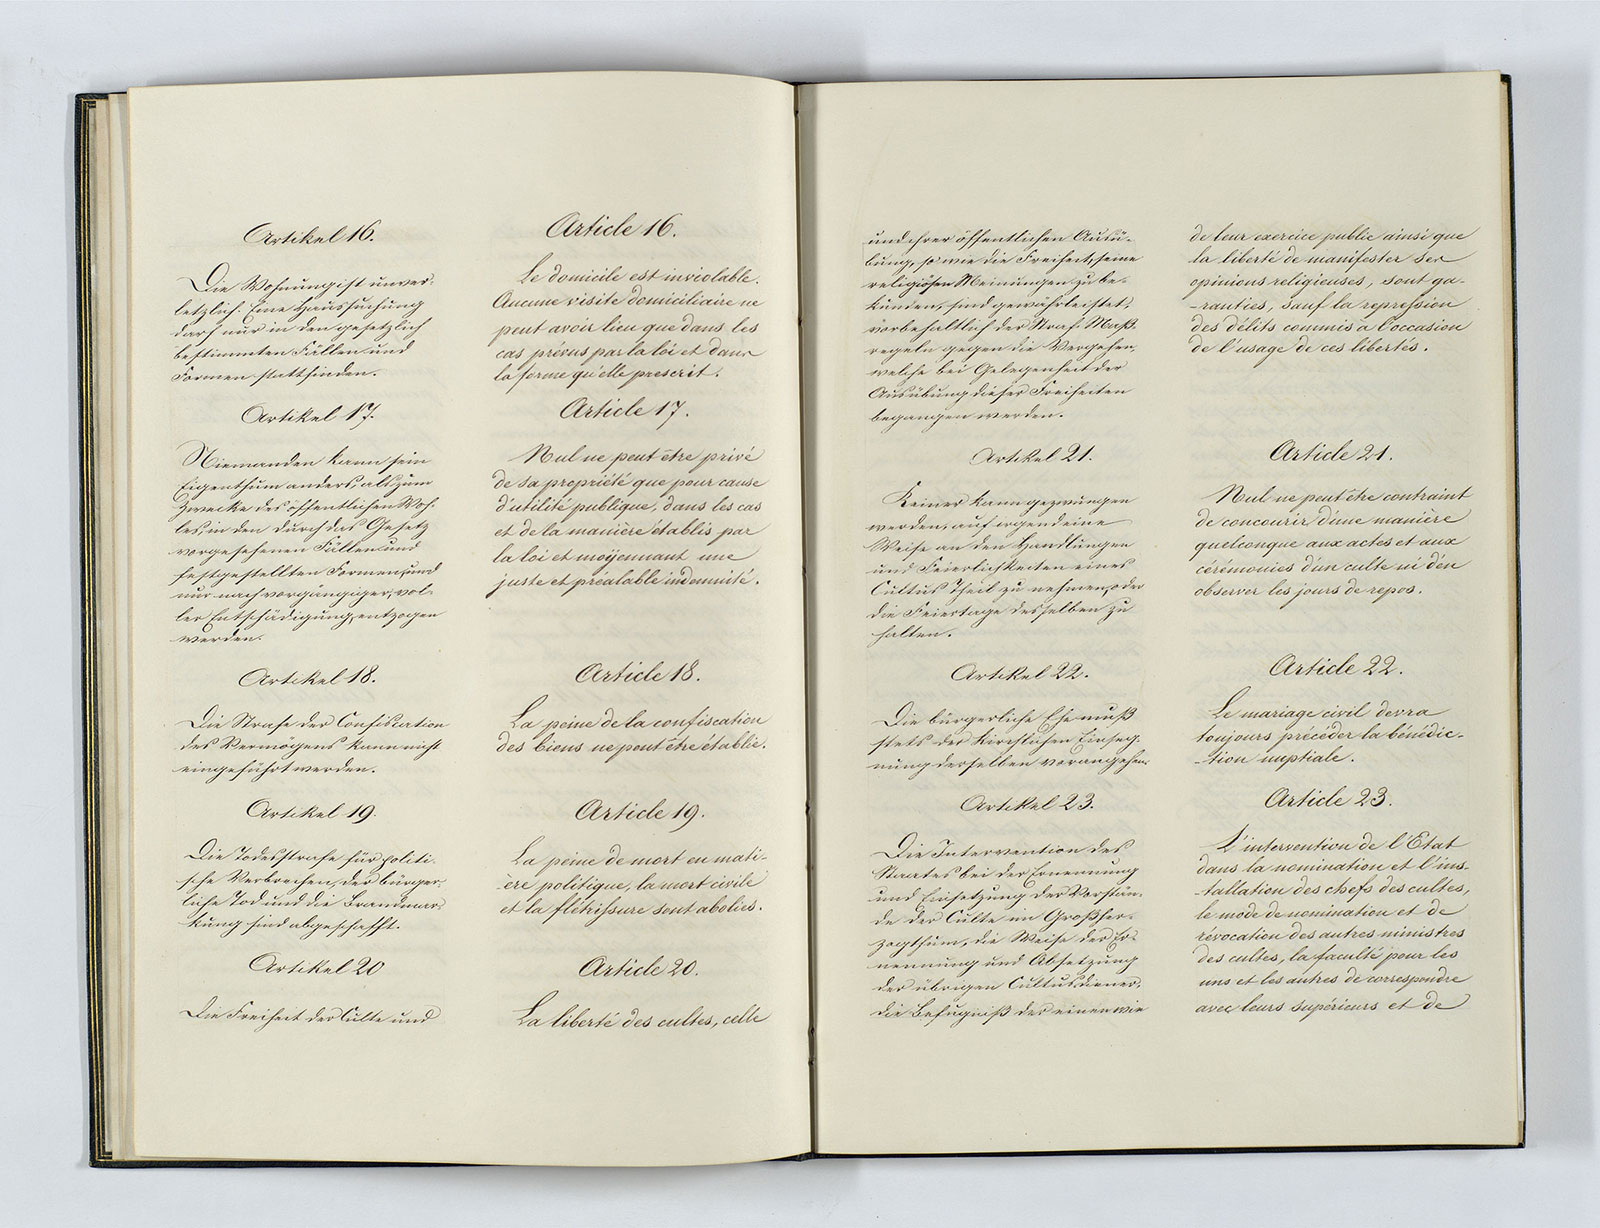 Artikel 16.
Die Wohnung ist unver-
letzlich. Eine Haussuchung
darf nur in den gesetzlich
bestimmten Fällen und
Formen stattfinden.
Artikel 17.
Niemanden kann sein
Eigenthum anders, als zum
Zwecke des öffentlichen Woh-
les, in den durch das Gesetz
vorgesehenen Fällen und
festgestellten Formen, und
nur nach vorgängiger, vol-
ler Entschädigung, entzogen
werden.
Artikel 18.
Die Strafe der Confiscation
des Vermögens kann nicht
eingeführt werden.
Artikel 19.
Die Todesstrafe für politi-
sche Verbrechen, der bürger-
liche Tod und die Brandmar-
kung sind abgeschafft.
Artikel 20
Die Freiheit der Culte und
Article 16.
Le domicile est inviolable.
Aucune visite domiciliaire ne
peut avoir lieu que dans les
cas prévus par la loi et dans
la forme qu'elle prescrit.
Article 17.
Nul ne peut être privé
de sa propriété que pour cause
d'utilité publique, dans les cas
et de la manière établis par
la loi et moyennant une
juste et préalable indemnité.
Article 18.
La peine de la confiscation
des biens ne peut être établie.
Article 19.
La peine de mort en mati-
ère politique, la mort civile
et la flétrissure sont abolies.
Article 20.
La liberté des cultes, celle
und ihrer öffentlichen Ausü-
bung, so wie die Freiheit, seine
religiösen Meinungen zu be-
kunden, sind gewährleistet,
vorbehaltlich der Straf-Maß-
regeln gegen die Vergehen,
welche bei Gelegenheit der
Ausübung dieser Freiheiten
begangen werden.
Artikel 21.
Keiner kann gezwungen
werden, auf irgend eine
Weise an den Handlungen
und Feierlichkeiten eines
Cultus Theil zu nehmen, oder
die Feiertage desselben zu
halten.
Artikel 22.
Die bürgerliche Ehe muß
stets der kirchlichen Einseg-
nung derselben vorangehen.
Artikel 23.
Die Intervention des
Staates bei der Ernennung
und Einsetzung der Vorstän-
de der Culte im Großher-
zogthum, die Weise der Er-
nennung und Absetzung
der übrigen Cultusdiener,
die Befugniß der einen wie
de leur exercice public ainsi que
la liberté de manifester ses
opinions religieuses, sont ga-
-ranties, sauf la repression
des délits commis à l'occasion
de l'usage de ces libertés.
Article 21.
Nul ne peut être contraint
de concourir d'une manière
quelconque aux actes et aux
cérémonies d'un culte ni d'en
observer les jours de repos.
Article 22.
Le mariage civil devra
toujours précéder la bénédic-
-tion nuptiale.
Article 23.
L'intervention de l'Etat
dans la nomination et l'ins-
-tallation des chefs des cultes,
le mode de nomination et de
révocation des autres ministres
des cultes, la faculté pour les
uns et les autres de correspondre
avec leurs supérieurs et de